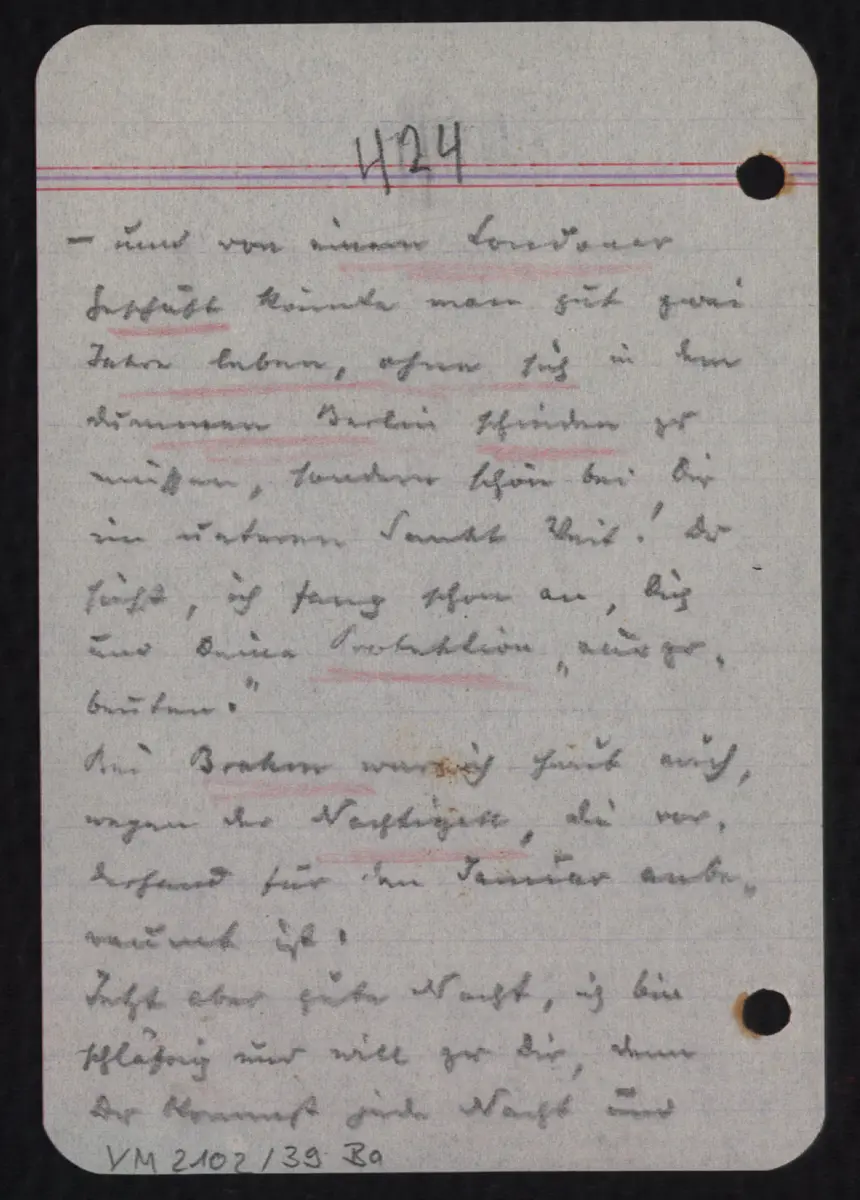 424
– und von einem Londoner
Geschäft könnte man gut zwei
Jahre leben, ohne sich in dem
dummen Berlin schinden zu
müssen, sondern schön bei Dir
im unteren Sankt Veit! Du
siehst, ich fang schon an, Dich
und Deine Protektion „auszu-
beuten."
Bei Brahm war ich heut auch,
wegen der Nachtigall, die vor-
derhand für den Januar anbe-
raumt ist.
Jetzt aber gute Nacht, ich bin
schläfrig und will zu Dir, denn
Du kommst jede Nacht und
VM 2102/39 Ba